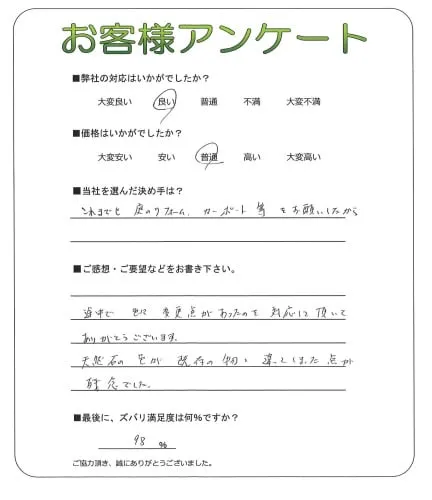 お客様アンケート
■弊社の対応はいかがでしたか？
大変良い 良い 普通 不満 大変不満
■価格はいかがでしたか？
大変安い 安い 普通 高い 大変高い
■当社を選んだ決め手は？
これまでも 庭のリフォーム、カーポート 等 をお願いしたから
■ご感想・ご要望などをお書き下さい。
途中で 変更点があったのを 対応して頂いて
ありがとうございます。
天然石の色が 既存の物と 違ってしまった点が
残念でした。
■最後に、ズバリ満足度は何％ですか？
98 %
ご協力頂き、誠にありがとうございました。